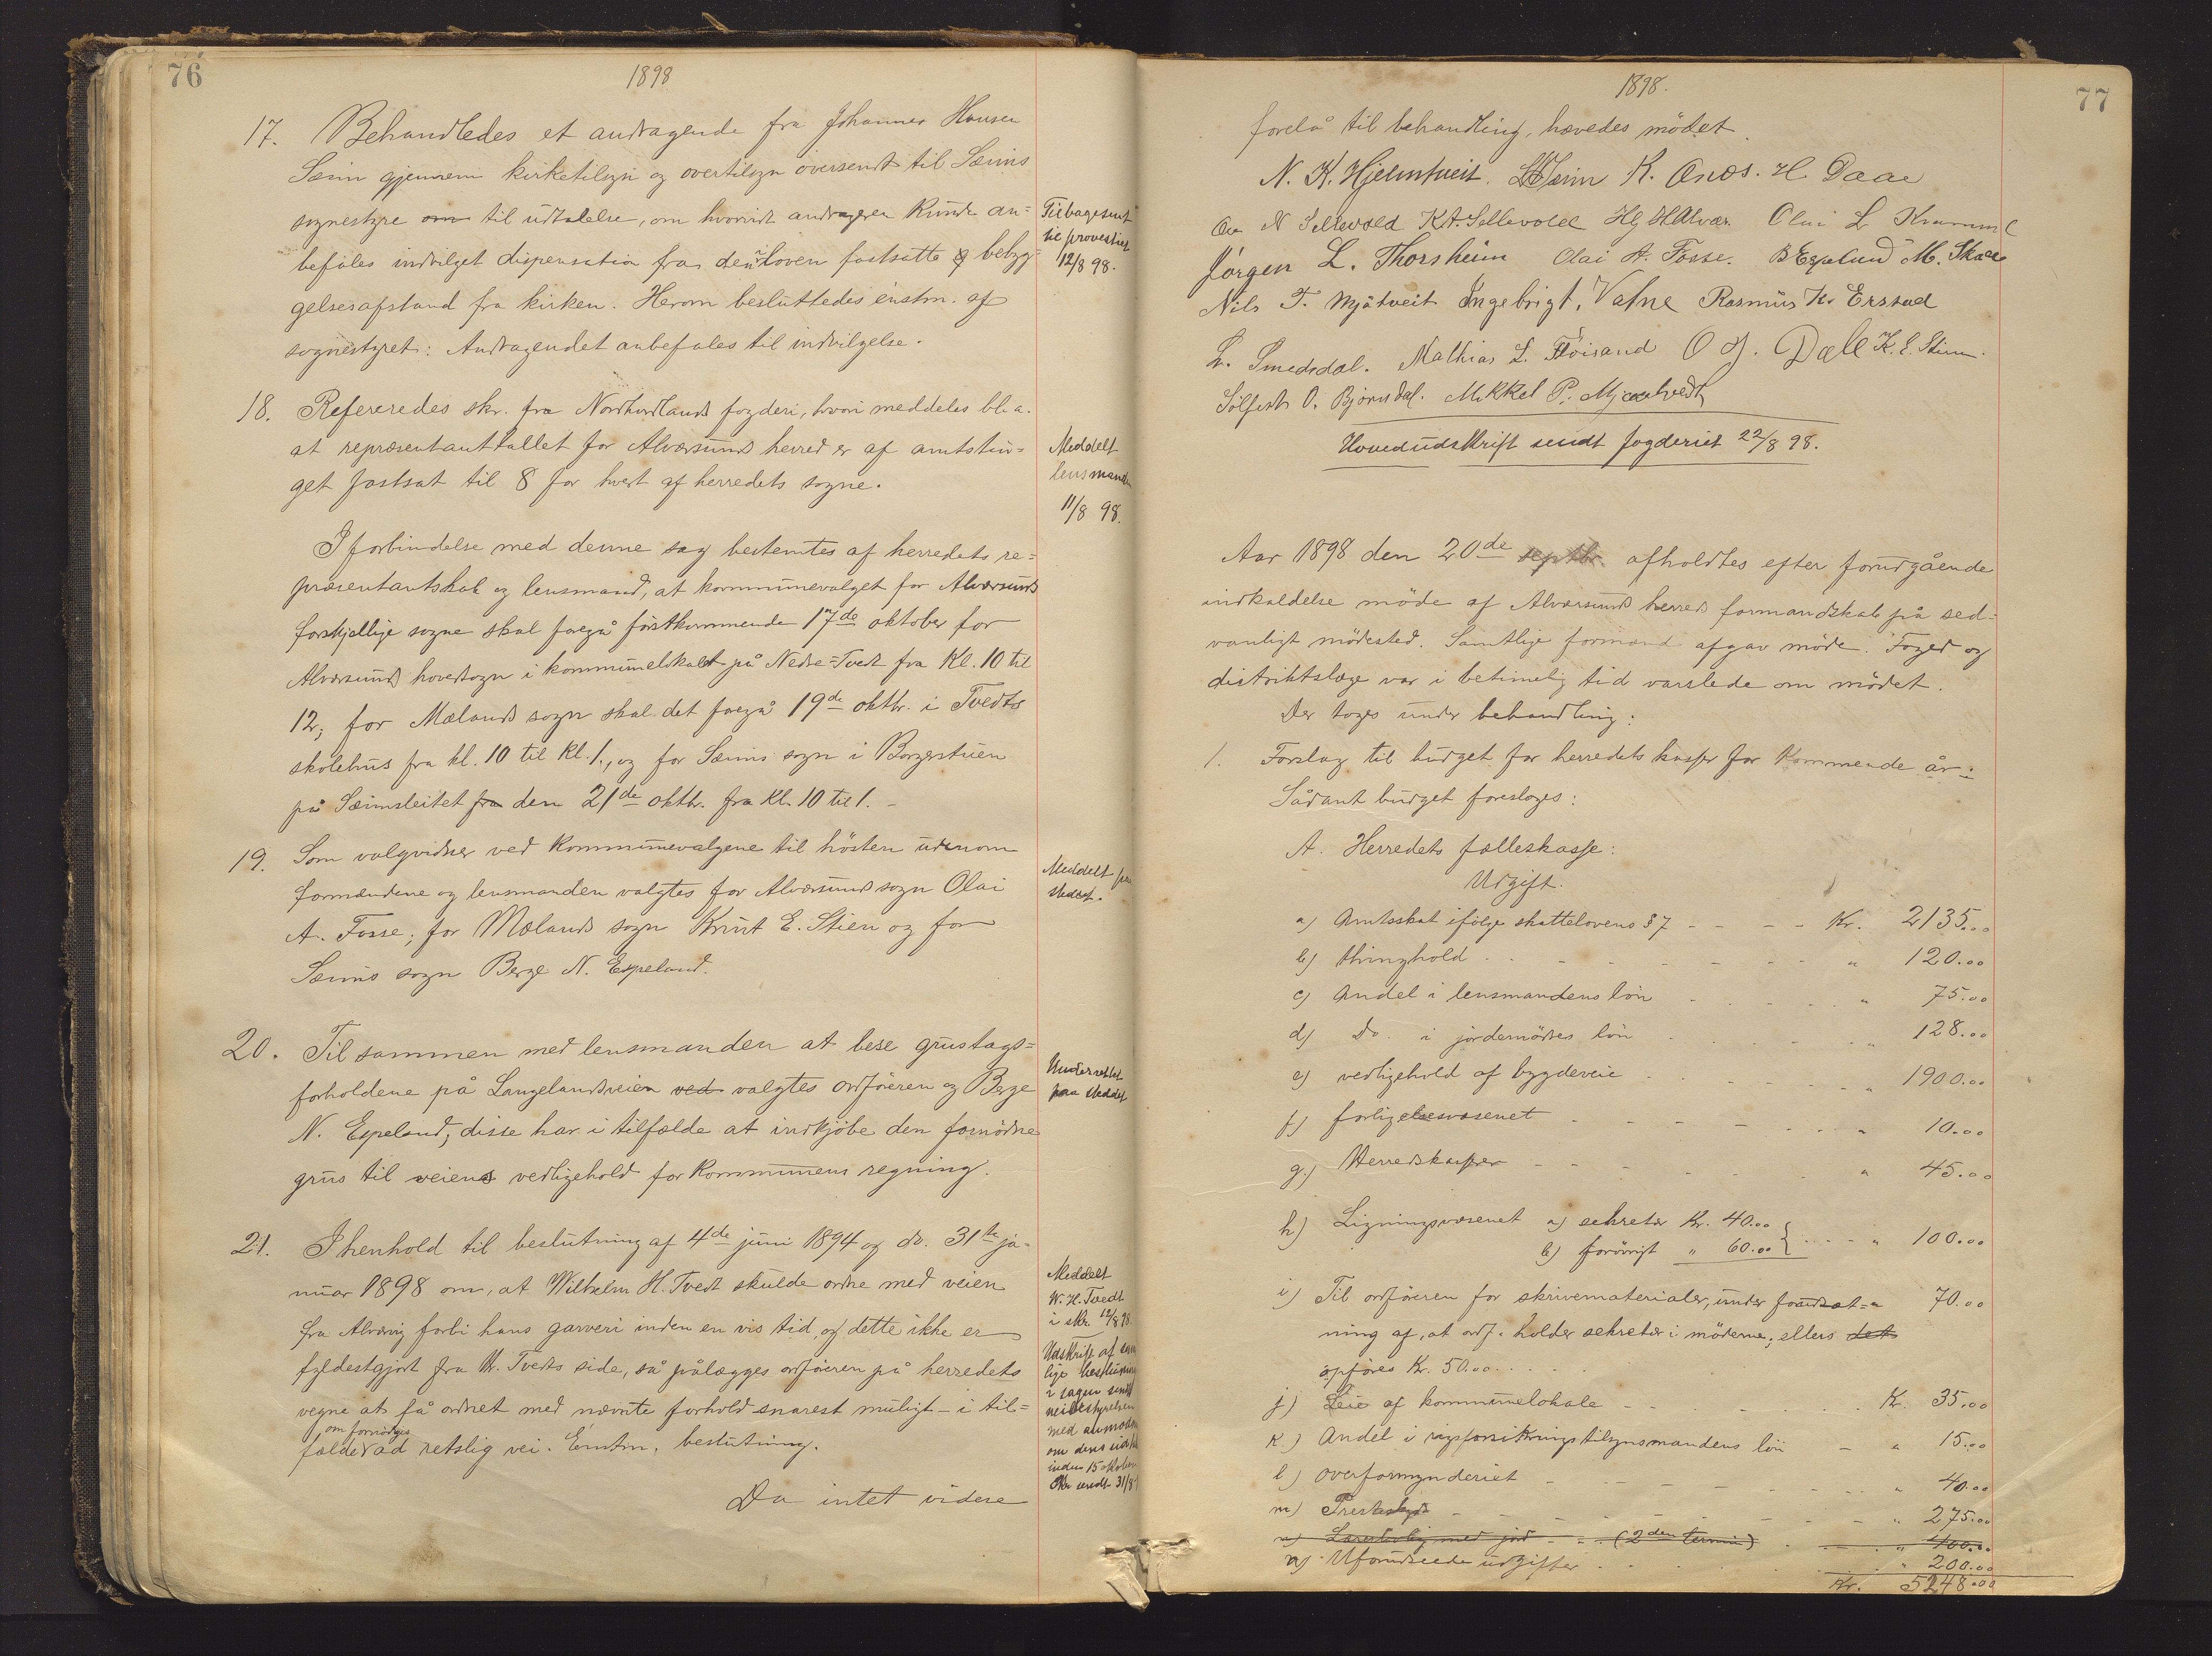 76
1898
17. Behandledes et andragende fra Johannes Hansen
Sæim gjennem kirketilsyn og overtilsyn oversendt til Sæims
sognestyre om til udtalelse, om hvorvidt andrageren kunde an-
befales indvilget dispensation fra den i loven fastsatte bebyg-
gelsesafstand fra kirken. Herom besluttedes enstm. af
sognestyret: Andragendet anbefales til indvilgelse.
Tilbagesent
til provstiet
12/8 98.
18. Refereredes skr. fra Nordhordlands fogderi, hvori meddeles bl. a.
at repræsentanttallet for Alversunds herred er af amtstin-
get fastsat til 8 for hvert af herredets sogne.
Meddelt
lensmanden
11/8 98.
I forbindelse med denne sag bestemtes af herredets re-
præsentantskab og lensmand, at kommunevalget for Alversunds
forskjellige sogne skal foregå förstkommende 17de oktober for
Alversunds hovedsogn i kommunelokalet på Nedre-Tvedt fra Kl. 10 til
12; for Mælands sogn skal det foregå 19de oktbr. i Tvedts
skolehus fra kl. 10 til Kl. 1., og for Sæims sogn i Borgerstuen
på Sæimsleitet fra den 21de oktbr. fra Kl. 10 til 1. -
19. Som valgvidner ved Kommunevalgene til hösten udenom
formændene og lensmanden valgtes for Alversunds sogn Olai
A. Fosse; for Mælands sogn Knut E. Stien og for
Sæims sogn Berge N. Espeland.
Meddelt paa
stedet.
20. Til sammen med lensmanden at bese grustags-
forholdene på Langelandsveien ved valgtes ordföreren og Berge
N. Espeland; disse har i tilfælde at indkjöbe den fornödne
grus til veiens vedligehold for Kommunens regning.
Underrettet
paa stedet
21. I henhold til beslutning af 4de juni 1894 og do. 31te ja-
nuar 1898 om, at Wilhelm H. Tvedt skulde ordne med veien
fra Alverviq forbi hans garveri inden en vis tid, og dette ikke er
fyldestgjort fra W. Tvedts side, så pålægges ordföreren på herredets
vegne at få ordnet med nævnte forhold snarest muligt - i til-
om fornödiges
fælde ad retslig vei. Enstm. beslutning.
Meddelt
W. H. Tvedt
i skr. 12/8 98.
Udskrift af sam
lige beslutning
i sagen sendt
veibestyrelsen
med anmodn
om dens
inden 15 oktober
Skr sendt 31/8
Da intet videre
1898.
77
forelå til behandling, hævedes mödet.
N. K. Hjelmtveit. Sæim K. Onds. H. Daae
N Sellevold K A Sellevold Hl H Alver Olai L Kvamme
Jörgen L. Thorsheim Olai A. Fosse. B Espelund M. Skaar
Nils T. Mjåtveit Ingebrigt. Vatne Rasmus K. Erstad
L. Smedsdal. Mathias L. Flöisand O J. Dall K. E. Stien.
Sölfest O. Björndal. Mikkel P. Mjaatvedt
Hovedudskrift sendt fogderiet 22/8 98.
Aar 1898 den 20de septbr. afholdtes efter forudgående
indkaldelse möde af Alversunds herreds formandskab på sed-
vanligt mödested. Samtlige formænd afgav möde. Foged og
distriktslæge var i betimelig tid varslede om mödet.
Der toges under behandling:
1. Forslag til budget for herredets kasser for Kommende år:
Sådant budget foresloges:
A. Herredets fælleskasse:
Udgift.
a) Amtsskat ifölge skattelovens § 7 - - - - Kr. 2135.00
b) thinghold - - - - - - - - " 120.00
c) Andel i lensmandens lön - - - - " 75.00
d) Do. i jordemödres lön - - - - " 128.00
e) vedligehold af bygdeveie - - - - " 1900.00
f) forligelsesvæsenet - - - - - - " 10.00
g) Herredskasser - - - - - - " 45.00
h) Ligningsvæsenet a) sekretær Kr. 40.00
b) forövrigt " 60.00 } - - - " 100.00
i) Til ordföreren for skrivematerialer, under forudsæt- " 70.00
ning af, at ordf. holder sekretær i möderne; ellers det
opföres Kr. 50.00 - - -
j) Leie af kommunelokale - - - - - Kr. 35.00
k.) Andel i tilsynsmandens lön - " 15.00
l) overformynderiet - - - - - - " 40.00
m) Presteskyds - - - - - - - " 275.00
n) Lærerbolig med jord - - - (2den termin) - - " 400.00
n) Uforudseede udgifter - - - - - " 200.00
Kr. 5248.00